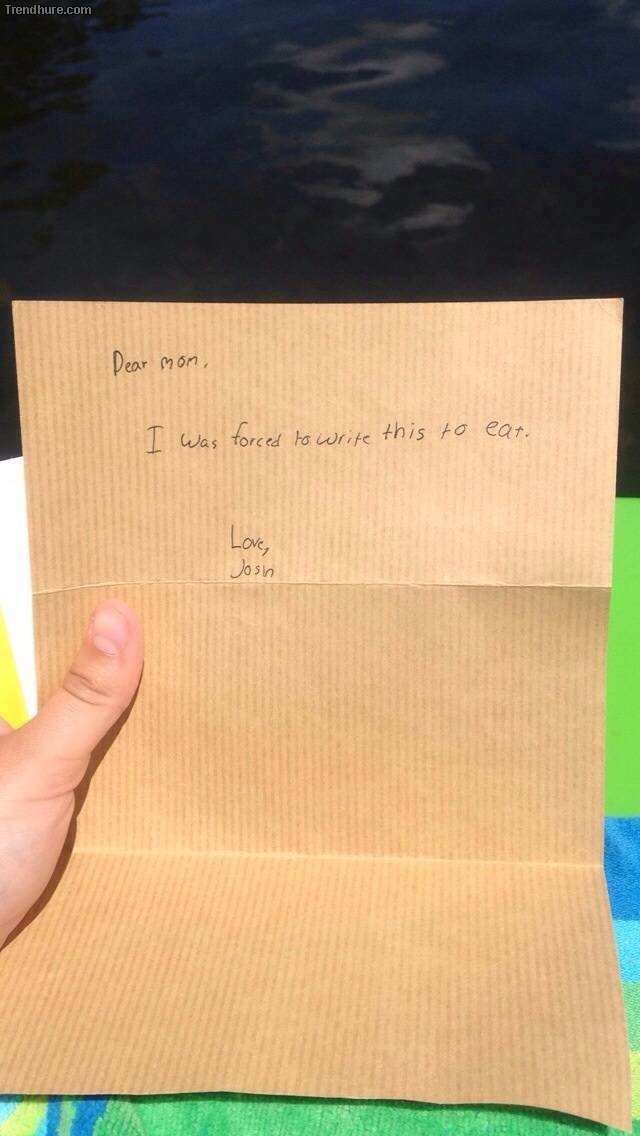 Trendhure.com
Dear mom,
I was forced to write this to eat.
Love,
Josh